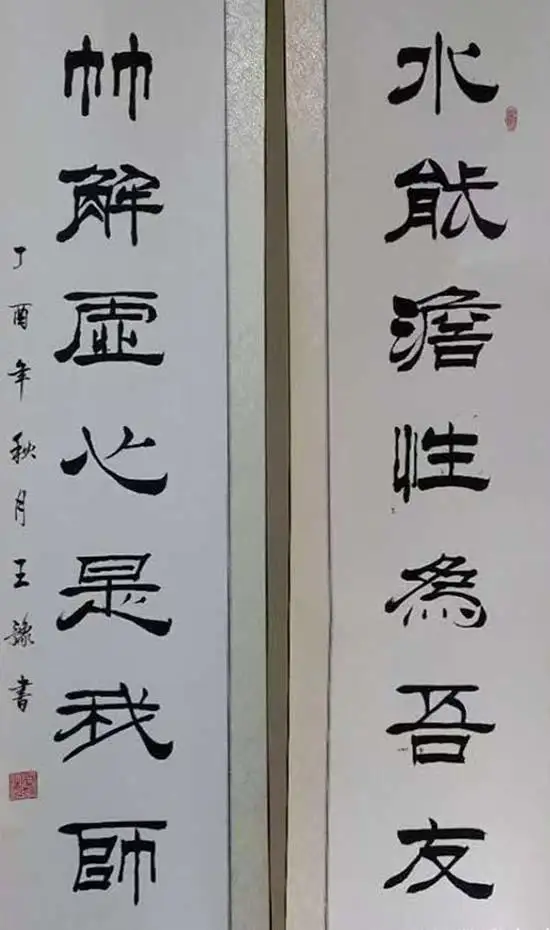 水能澹性為吾友
竹解虛心是我師
丁酉年秋月王豫書